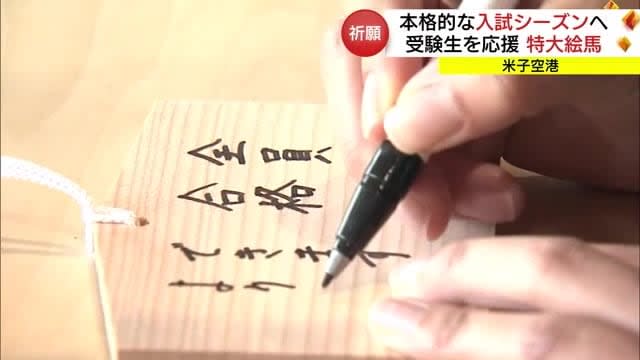 祈願
本格的な入試シーズンへ
受験生を応援 特大絵馬
米子空港
全員
合格
できます
よう